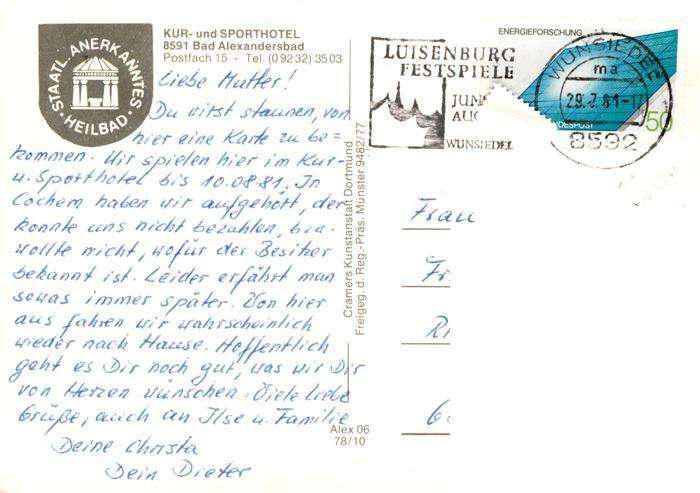 STAATL. ANERKANNTES
HEILBAD
KUR- und SPORTHOTEL
8591 Bad Alexandersbad
Postfach 15 - Tel. (09232) 3503
Liebe Mutter!
Du wirst staunen, von
hier eine Karte zu be=
kommen. Wir spielen hier im Kur-
u. Sporthotel bis 10.08.81. In
Cochem haben wir aufgehört, der
konnte uns nicht bezahlen, bzw.
wollte nicht, wofür der Besitzer
bekannt ist. Leider erfährt man
sowas immer später. Von hier
aus fahren wir wahrscheinlich
wieder nach Hause. Hoffentlich
geht es Dir noch gut, was wir Dir
von Herzen wünschen. Viele liebe
Grüße, auch an Ilse u. Familie
Deine Christa
Dein Dieter
Cramers Kunstanstalt Dortmund
Freigeg. d. Reg.-Präs. Münster 9482/77
Alex 06
78/10
LUISENBURG
FESTSPIELE
JUN
AUG
WUNSIEDEL
ENERGIEFORSCHUNG
50
WUNSIEDEL
ma
29.7.81-17
8592
Frau
Fr